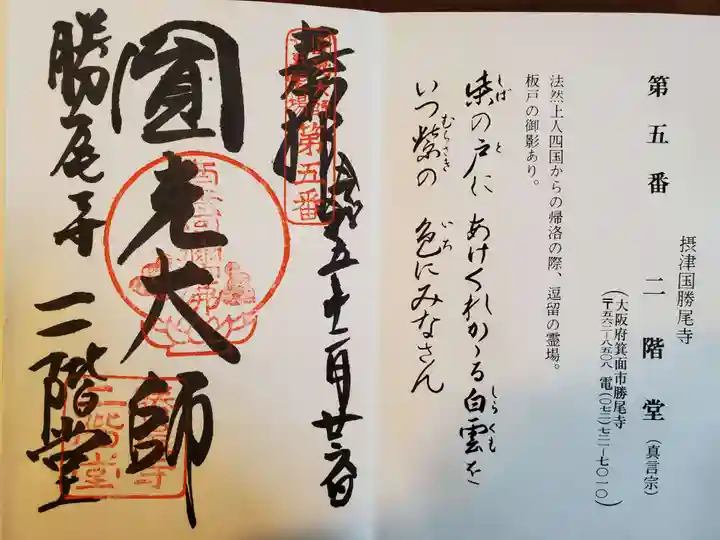 第五番 摂津国勝尾寺
二階堂 (真言宗)
(大阪府箕面市勝尾寺
〒五六二ー八五〇八 電(〇七二)七二一ー七〇一〇)
法然上人四国からの帰洛の際、逗留の霊場。
板戸の御影あり。
柴の戸に あけくれかゝる白雲を
しば と しらくも
いつ紫の 色にみなさん
むらさき いろ
奉拝 五年十一月廿六日
第五番
圓光大師
勝尾寺 二階堂
勝尾寺
二階堂